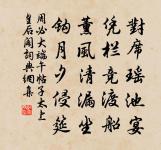 對席瑶池宴
凭栏竟渡船
薰風清漏坐
鈎月夕侵筵
周必大端午帖子太上
皇后閣詞典網集